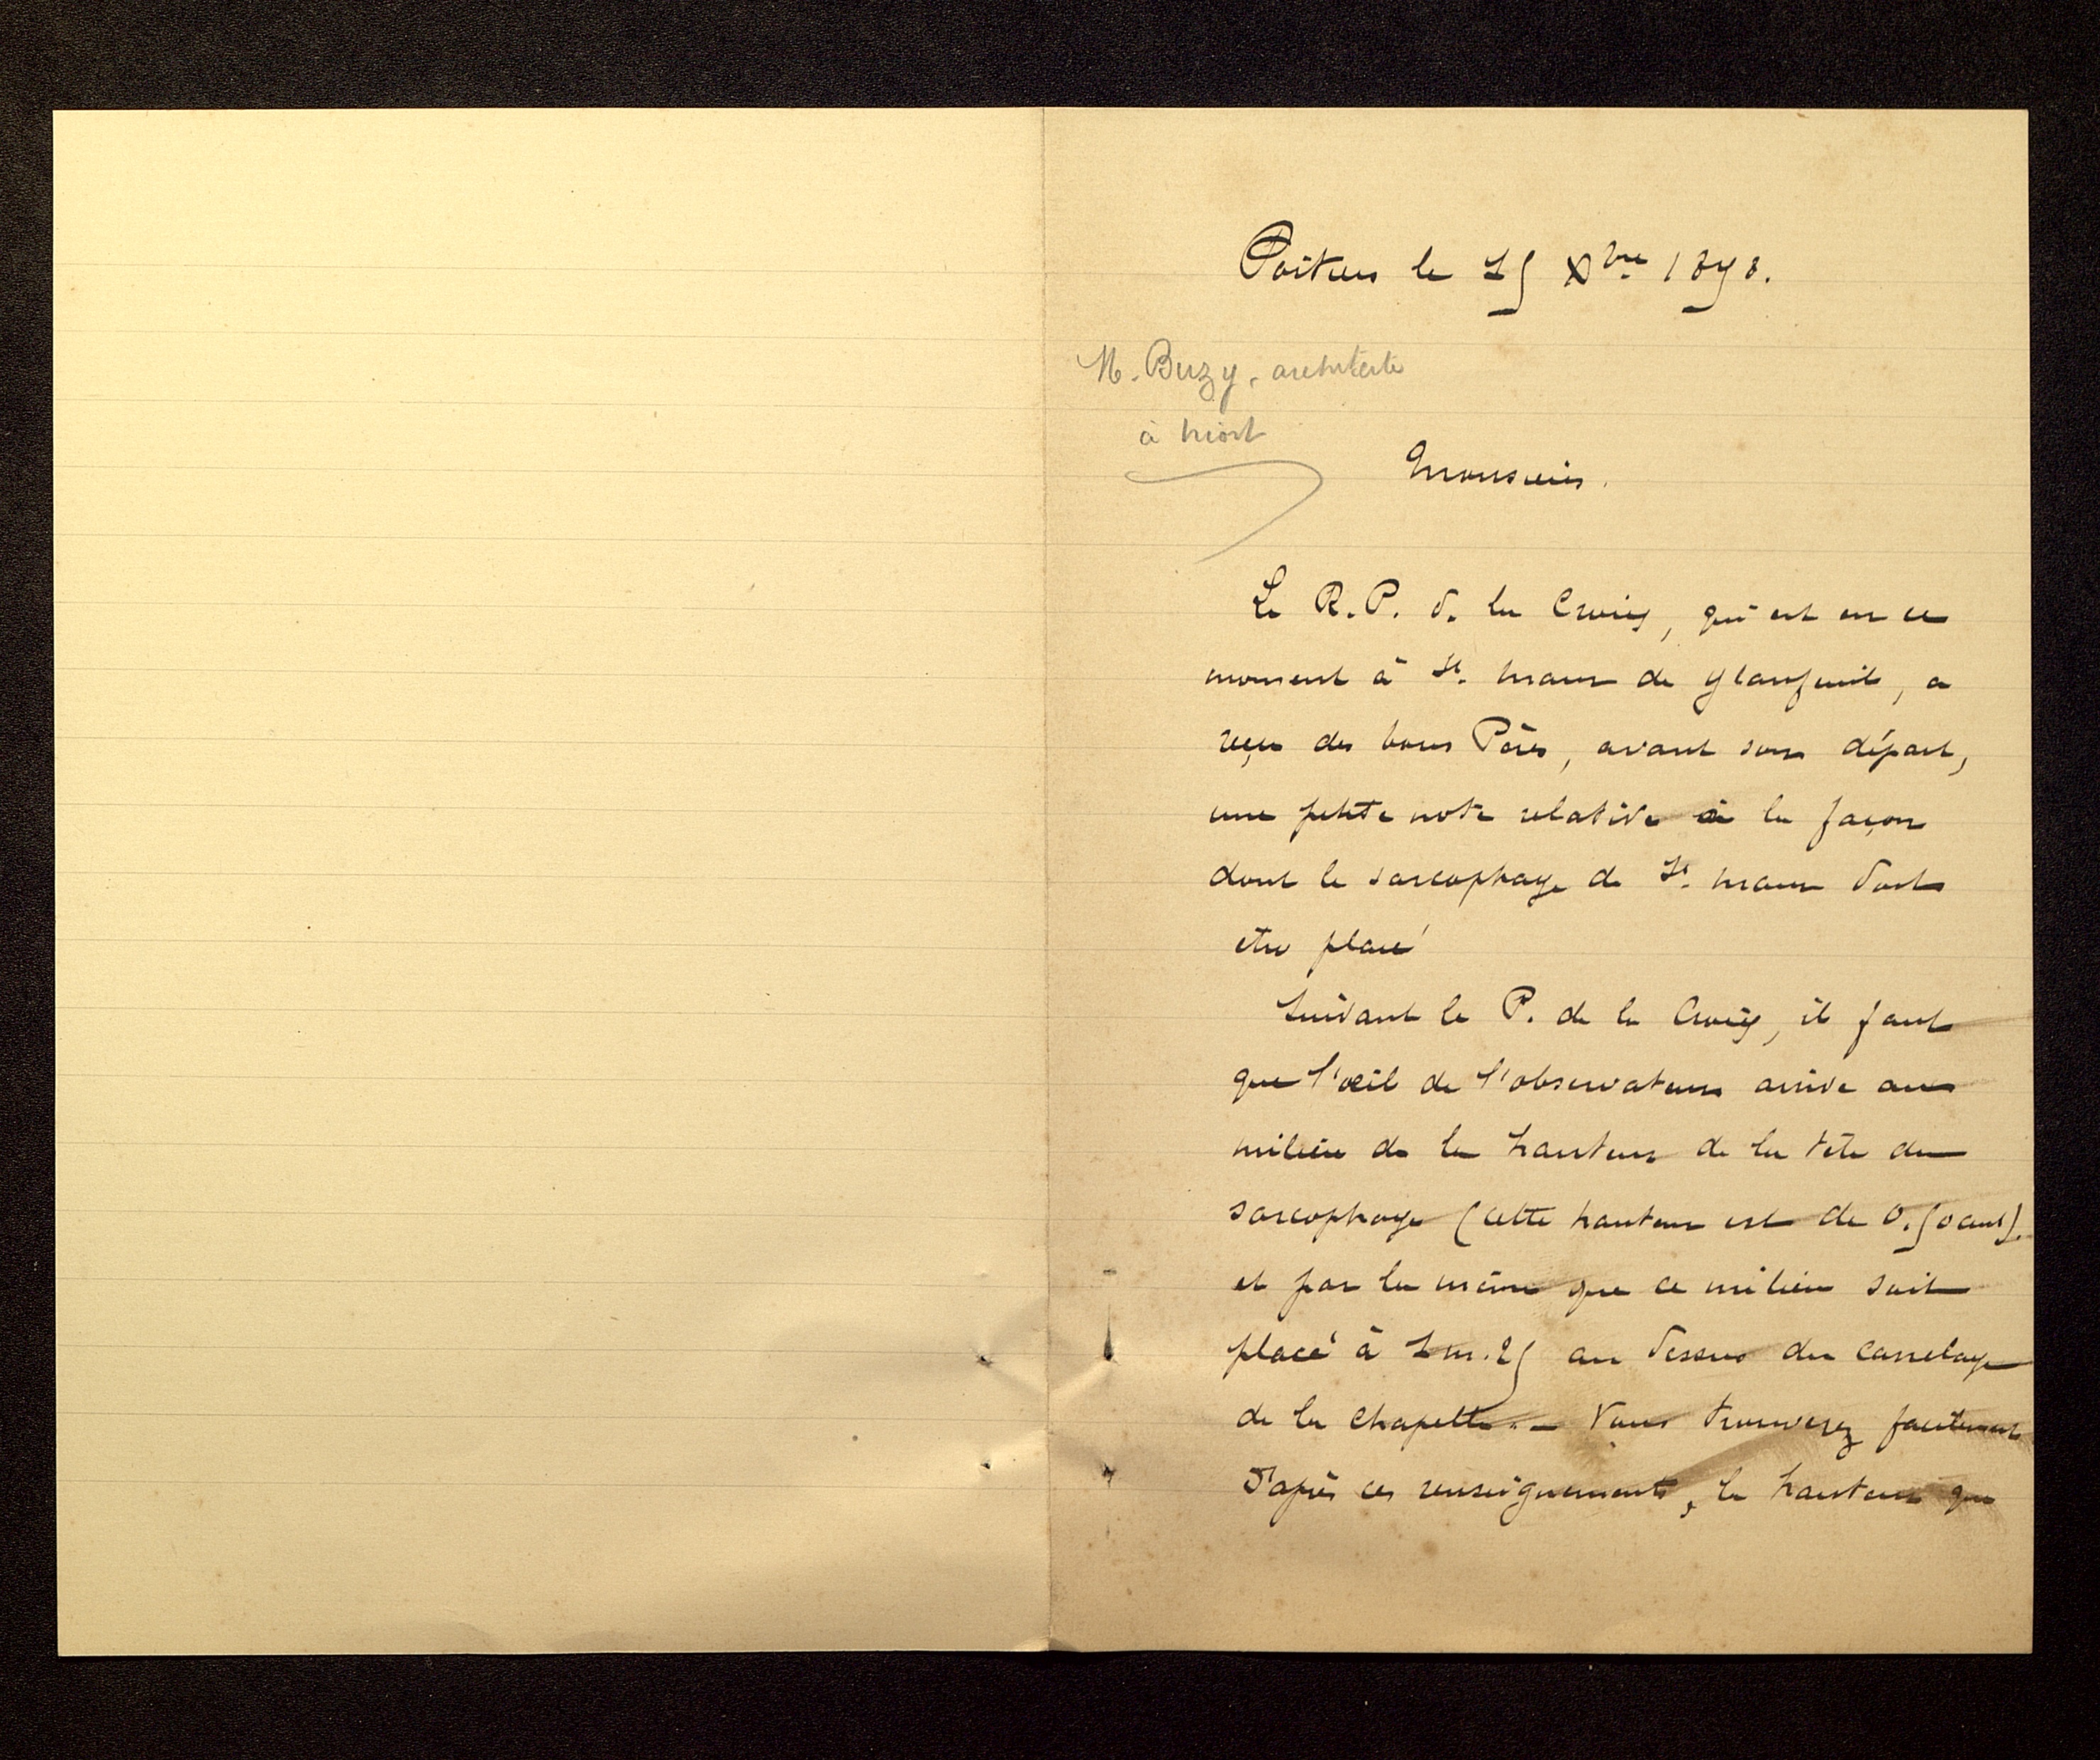 Poitiers le 15 Xbre 1898.
M. Buzy. architecte
à Niort
Monsieur.
Le R.P. de la Croix, qui est en ce
moment à St. Maur de Glanfeuil, a
reçu des bons Pères, avant son départ,
une petite note relative à la façon
dont le sarcophage de St. Maur doit
etre placé
Suivant le P. de la Croix, il faut
que l'œil de l'observateur arrive au
milieu de la hauteur de la tête du
sarcophage (cette hauteur est de 0.50 cent).
et par la même que ce milieu soit
placé à 1m.25 au dessus du carrelage
de la chapelle. — Vous trouverez facilement
d'après ces renseignements, la hauteur que